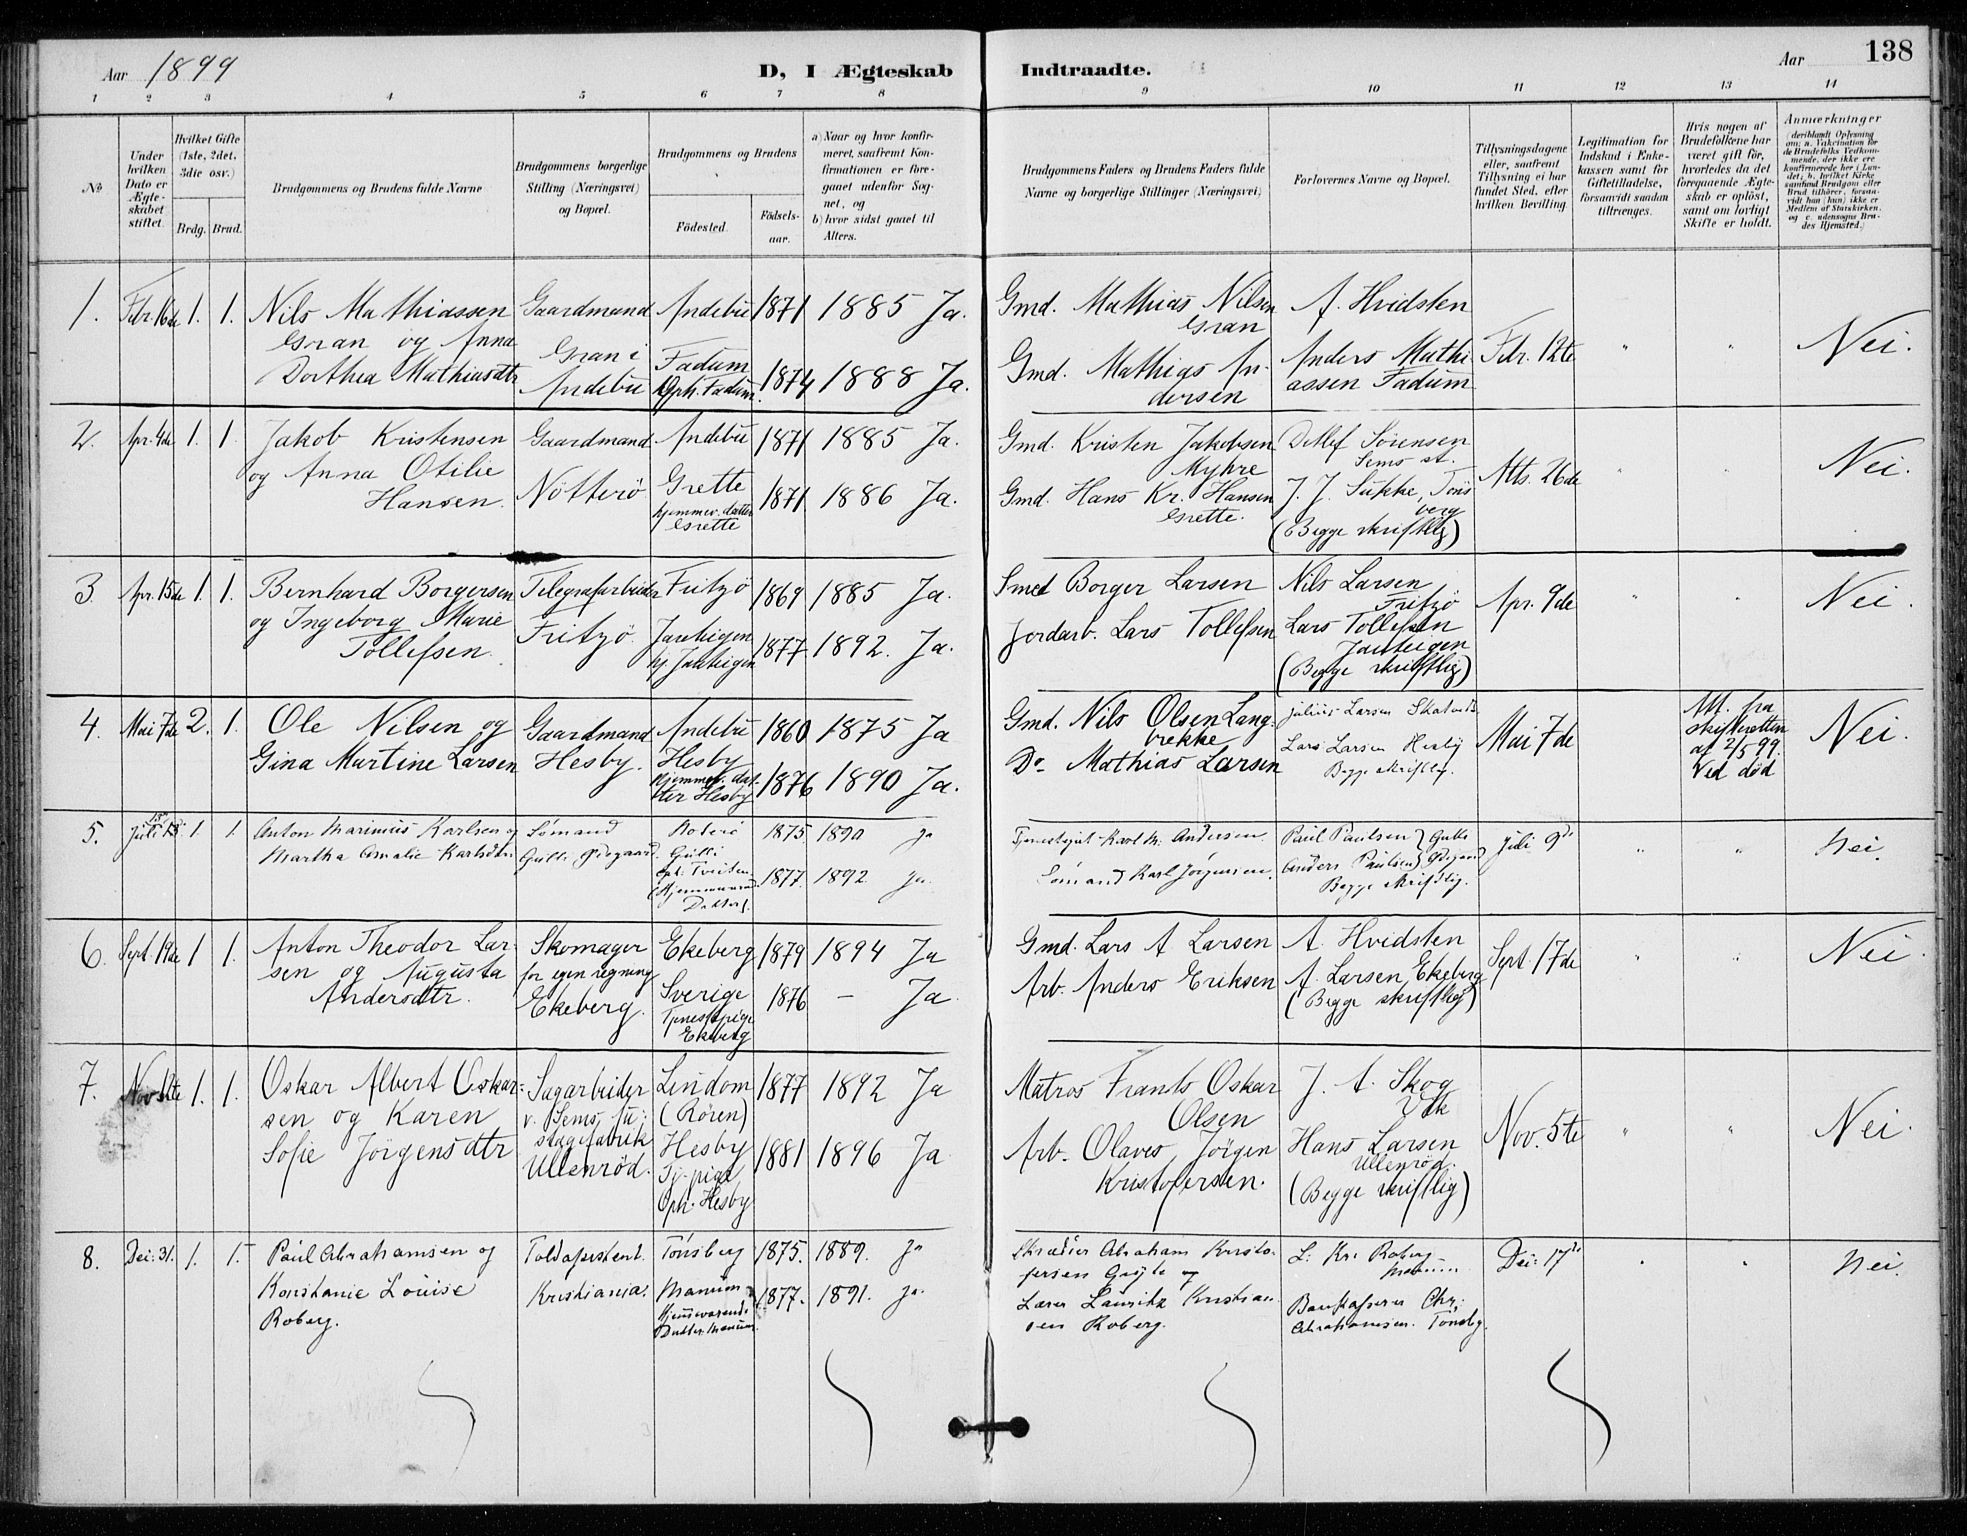 138
Aar 1899
D, I Ægteskab Indtraadte.
Aar
1 2 3 4 5 6 7 8 9 10 11 12 13 14
No
Under hvilken Dato er Ægteskabet stiftet.
Hvilket Gifte (1ste, 2det, 3die osv.)
Brdg. Brud.
Brudgommens og Brudens fulde Navne
Brudgommens borgerlige Stilling (Næringsvei) og Bopæl.
Brudgommens og Brudens
Födested.
Födselsaar.
a) Naar og hvor konfirmeret, saafremt Konfirmationen er foregaaet udenfor Sognet, og
b) hvor sidst gaaet til Alters.
Brudgommens Faders og Brudens Faders fulde Navne og borgerlige Stillinger (Næringsvei)
Forlovernes Navne og Bopæl.
Tillysningsdagene eller, saafremt Tillysning ei har fundet Sted, efter hvilken Bevilling
Legitimation for Indskud i Enkekassen samt for Giftetilladelse, forsaavidt saadan tiltrænges.
Hvis nogen af Brudefolkene har været gift för, hvorledes da det foregaaende Ægteskab er oplöst, samt om lovligt Skifte er holdt.
Anmærkninger (deriblandt Oplysning om: a. Vakcination for de Brudefolks Vedkommende, der ikke ere konfirmerede her i Landet; b. hvilket Kirkesamfund Brudgom eller Brud tilhörer, forsaavidt han (hun) ikke er Medlem af Statskirken, og c. udensogns Brudes Hjemsted.)
1. Febr. 16de 1. 1. Nils Mathiassen Gaardmand Andebu 1871 1885 Ja. Gmd. Mathias Nilsen A. Hvidsten
Gran og Anna Gran i Fadum Gran Febr. 12te " " Nei.
Dorthea Mathiasdtr Andebu Oph. Fadum. 1874 1888 Ja. Gmd. Mathias Andersen Anders Mathiassen Fadum
2. Apr. 4de 1. 1. Jakob Kristensen Gaardmand Andebu 1871 1885 Ja. Gmd. Kristen Jakobsen Detlef Sørensen
og Anna Otilie Nötterö Grette Myhre Sems st. Mts. 26de " " Nei.
Hansen. hjemmev. datter Grette 1871 1886 Ja. Gmd. Hans Kr. Hansen Grette. J. J. Sukke, Tönsberg
(Begge skriftlig)
3. Apr. 15de 1. 1. Bernhard Borgersen Telegrafarbeider Fritzö 1869 1885 Ja. Smed Borger Larsen Nils Larsen
og Ingeborg Marie Fritzö Fritzö Apr. 9de " " Nei.
Tollefsen. 1877. 1892. Ja. Jordarb. Lars Tollefsen Lars Tollefsen
(Begge skriftlig)
4. Mai 7de 2. 1. Ole Nilsen og Gaardmand Andebu 1860 1875 Ja Gmd. Nils Olsen Langbrekke Julius Larsen
Gina Martine Larsen Hesby. Hesby hjemmev. datter Hesby 1876 1890 Ja. Do Mathias Larsen Lars Larsen Hesby Begge skriftlig. Mai 7de
Att. fra skifteretten af 2/5 99. Ved död Nei.
5. Juli 15 1. 1. Anton Marinius Karlsen og Sömand 1875 1890 Ja Karl M. Andersen. Paul Paulsen Gulli
Martha Amalie Karlsdtr. Gulli Ödegaard. Gulli oph. Tveiten (Hjemmeværende Datter). 1877. 1892. Ja. Sömand Karl Jörgensen. Anders Paulsen Ödegaard Begge skriftlig. Juli 9de " " Nei.
6. Sept. 19de 1 1. Anton Theodor Larsen og Augusta Skomager for egen regning Ekeberg 1879 1894 Ja Gmd. Lars A Larsen A. Hvidsten Sept. 17de " " Nei
Andersdtr. Ekeberg. Sverige Tjenestepige Ekeberg 1876 – Ja Arb. Anders Eriksen A. Larsen Ekeberg (Begge skriftlig)
7. Nov. 12te 1. 1. Oskar Albert Oskarsen og Karen Sagarbeider v. Sems Lindom (Rören) 1877 1892 Ja Matros Frants Oskar Olsen J. A. Skog
Sofie Jörgensdtr Ullenröd. Hesby Tj. pige Oph. Hesby 1881 1896 Ja Arb. Olaves Jörgen Kristofersen. Hans Larsen Ullenröd. (Begge skriftlig) Nov. 5te " " Nei.
8. Dec. 31. 1. 1. Paul Abrahamsen og Toldassistent. Tönsberg 1875. 1889. Ja Skrædder Abraham Kristofersen og L. Kr. Roberg Dec. 17de " " Nei.
Konstanse Louise Kristiania. Manum hjemmeværende Datter. Manum. 1877. 1891. Ja. Lærer Lauritz Kristiansen Roberg. Bankkasserer Chr. Abrahamsen. Tönsbg.
Roberg.